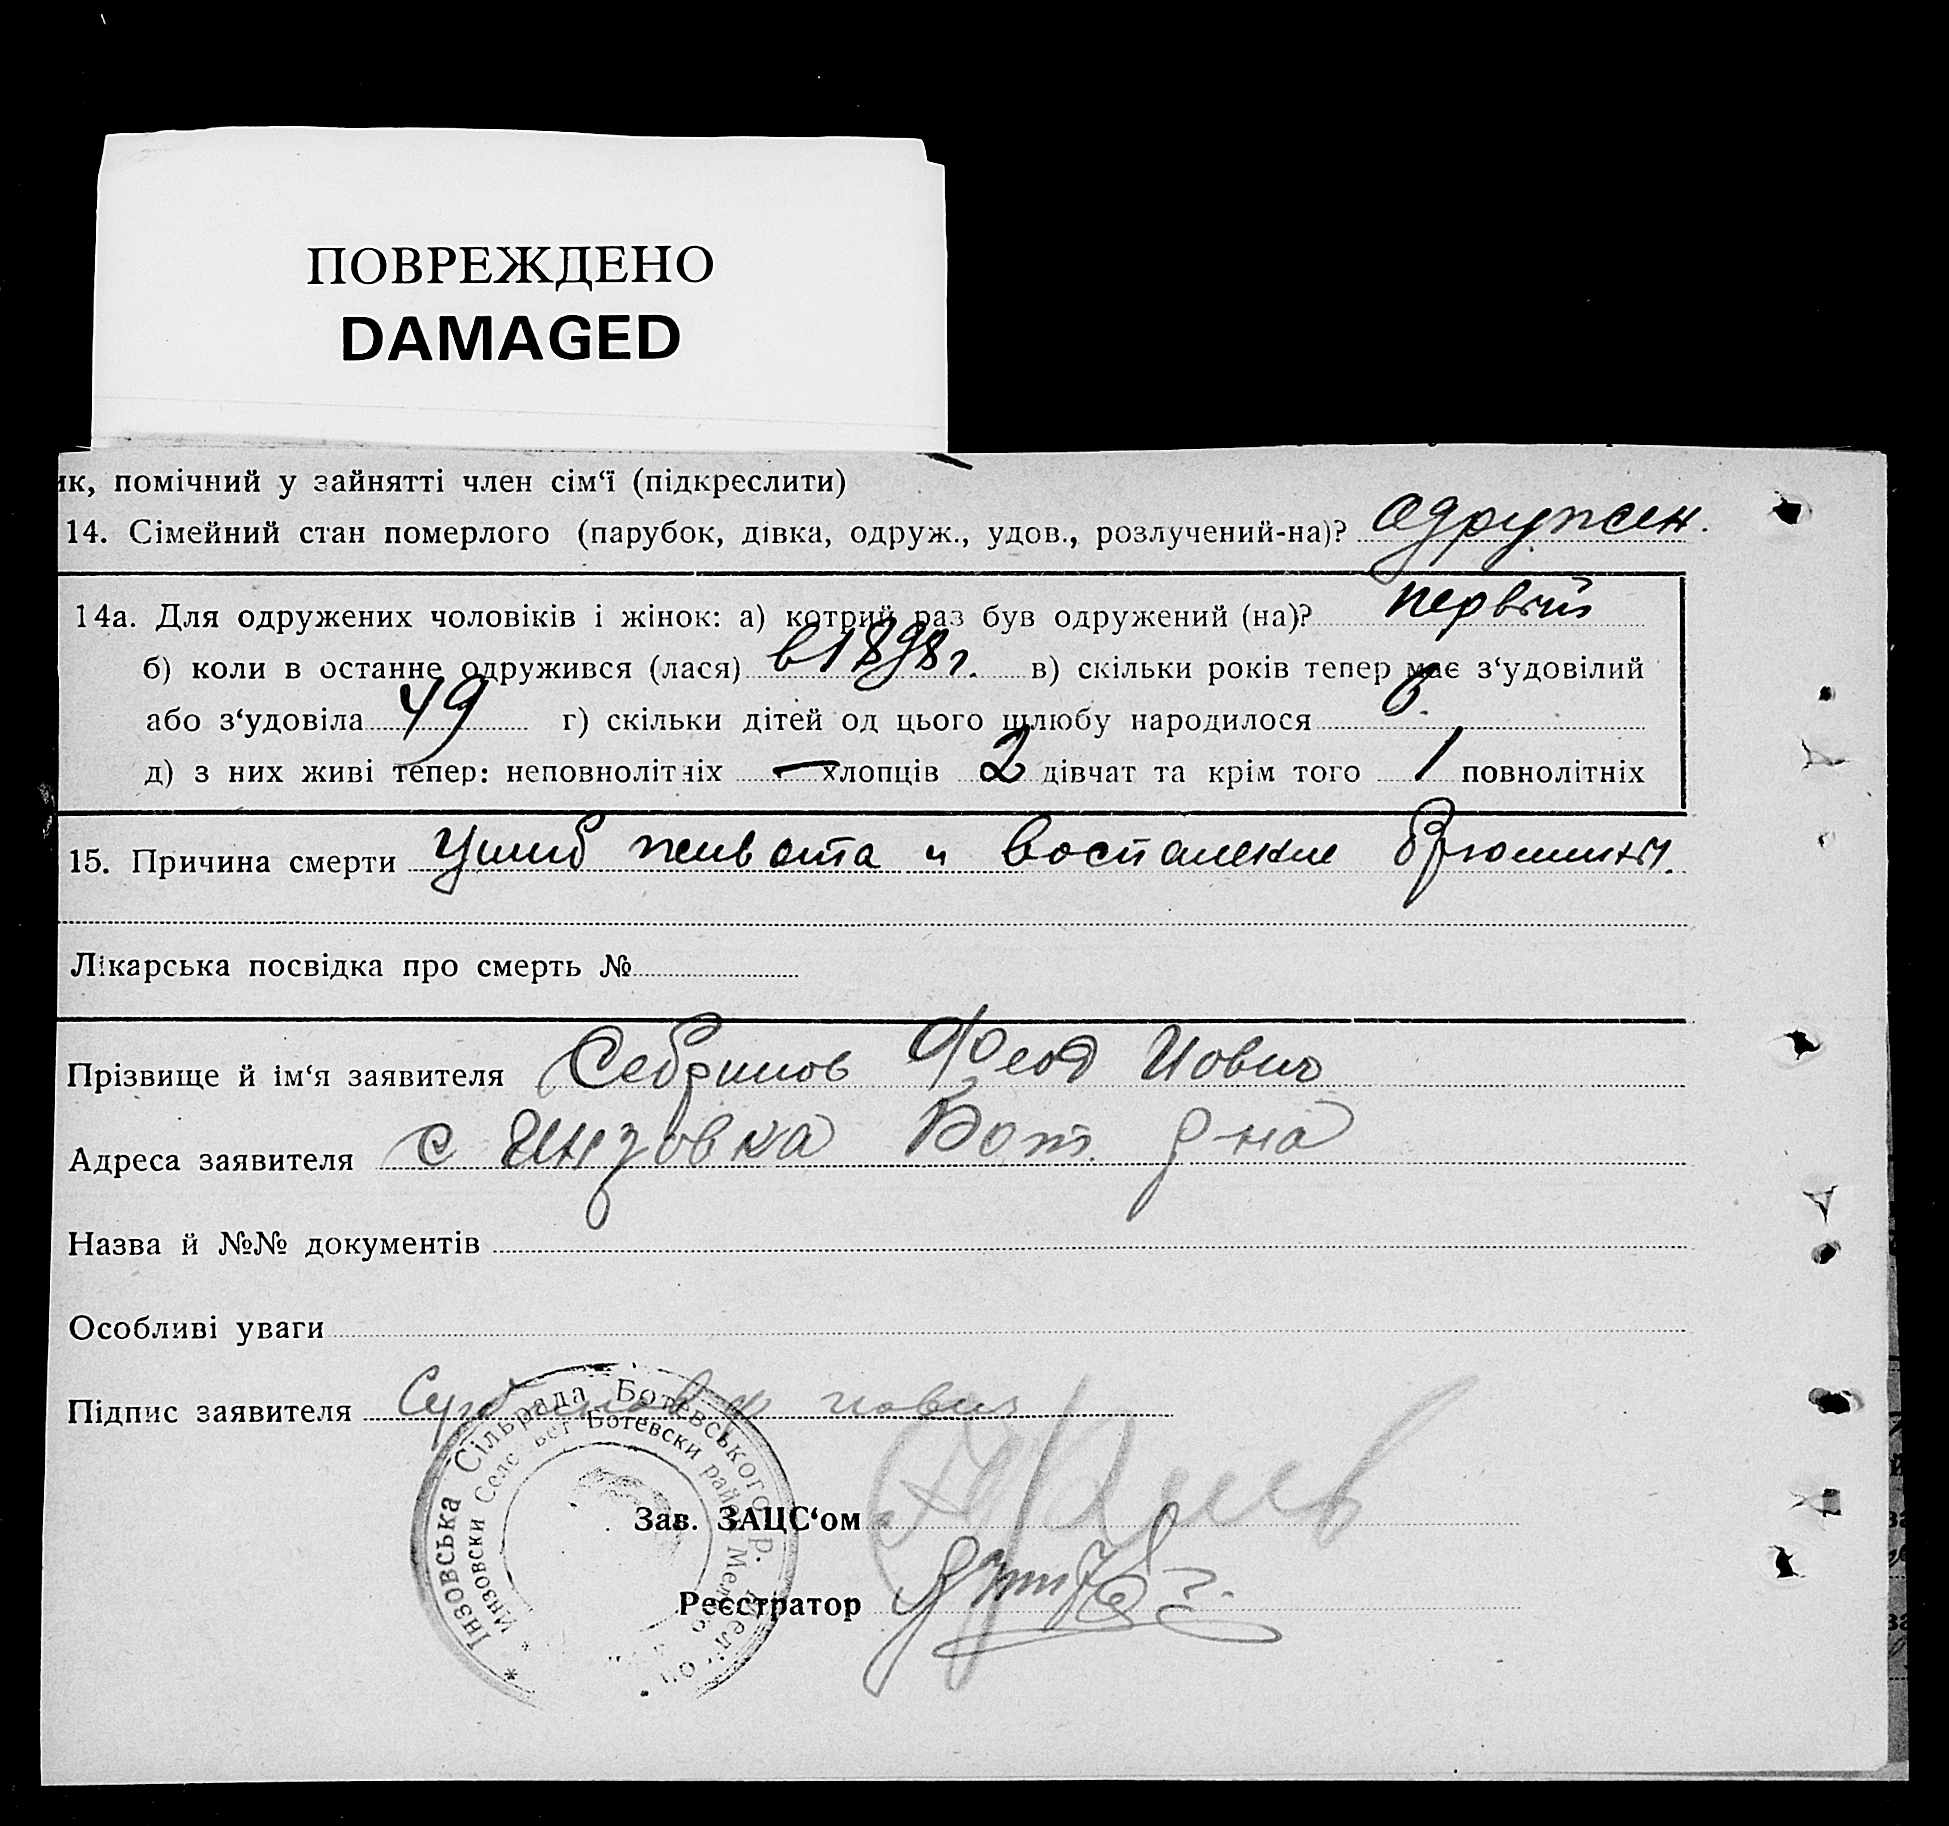 ПОВРЕЖДЕНО
DAMAGED
ик, помічний у зайнятті член сім‘ї (підкреслити)
14. Сімейний стан померлого (парубок, дівка, одруж., удов., розлучений-на)? одружен.
14а. Для одружених чоловіків і жінок: а) котрий раз був одружений (на)? первый
б) коли в останнє одружився (лася) в 1898 г. в) скільки років тепер має з‘удовілий
або з‘удовіла 49 г) скільки дітей од цього шлюбу народилося
д) з них живі тепер: неповнолітніх — хлопців 2 дівчат та крім того 1 повнолітніх
15. Причина смерти Ушиб живота и воспаление брюшины.
Лікарська посвідка про смерть №
Прізвище й ім‘я заявителя Феод Иович
Адреса заявителя с Инзовка Бот р-на
Назва й №№ документів
Особливі уваги
Підпис заявителя
Інзовська Сільрада Ботевського р. Мел
Инзовски Сельсовет Ботевски район Мел
Зав. ЗАЦС‘ом
Реєстратор